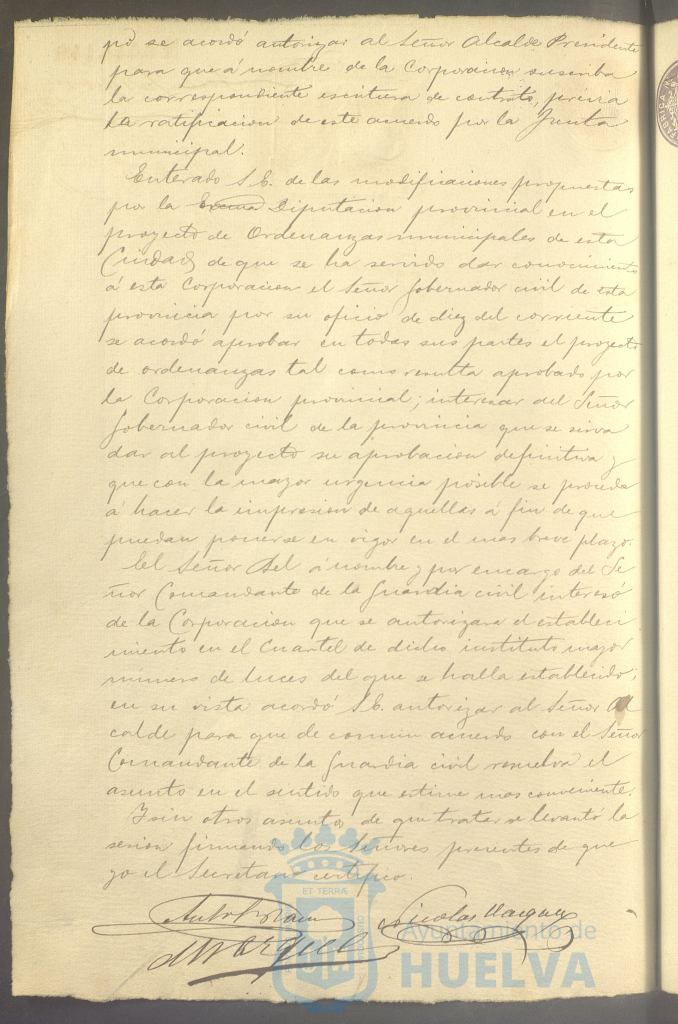 po se acordó autorizar al Señor Alcalde Presidente
para que á nombre de la Corporacion suscriba
la correspondiente escritura de contrato, prévia
la ratificacion de este acuerdo por la Junta
municipal.
Enterado S. E. de las modificaciones propuestas
por la Excma Diputacion provincial en el
proyecto de Ordenanzas municipales de esta
Ciudad de que se ha servido dar conocimiento
á esta Corporacion el Señor Gobernador civil de esta
provincia por su oficio de diez del corriente
se acordó aprobar en todas sus partes el proyecto
de ordenanzas tal como resulta aprobado por
la Corporacion provincial; interesar del Señor
Gobernador civil de la provincia que se sirva
dar al proyecto su aprobacion definitiva y
que con la mayor urgencia posible se proceda
á hacer la impresion de aquellas á fin de que
puedan ponerse en vigor en el mas breve plazo.
El Señor á nombre y por encargo del Se
ñor Comandante de la Guardia civil interesó
de la Corporacion que se autorizara el estableci
miento en el Cuartel de dicho instituto mayor
número de luces del que se halla establecido;
en su vista acordó S. E. autorizar al Señor Al
calde para que de comun acuerdo con el Señor
Comandante de la Guardia civil resuelva el
asunto en el sentido que estime mas conveniente.
Y sin otros asuntos de que tratar se levantó la
sesion firmando los Señores presentes de que
yo el Secretario certifico.
Nicolas Vazquez
ET TERRÆ
Ayuntamiento de
HUELVA
FABRICA